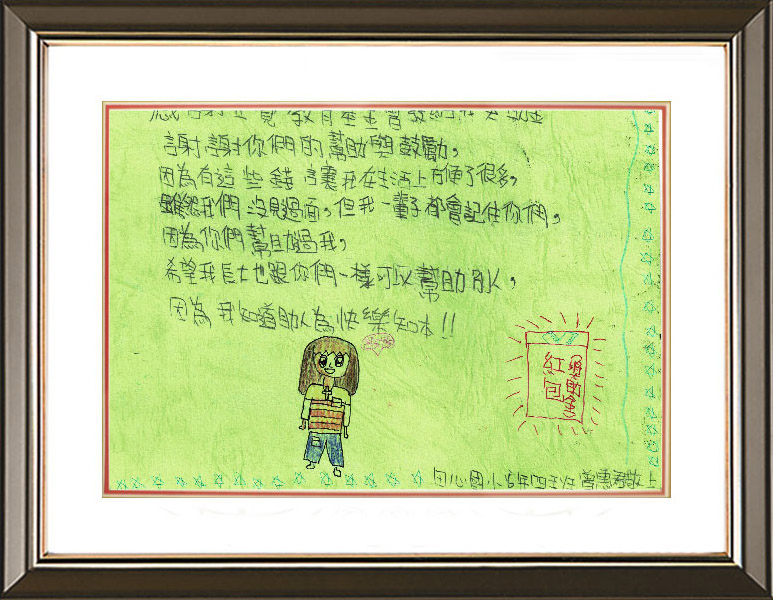 教育基金會
謝謝你們的幫助與鼓勵,
因為有這些錢讓我在生活上方便了很多,
雖然我們沒見過面,但我一輩子都會記住你們,
因為你們幫助過我,
希望我長大也跟你們一樣可以幫助別人,
因為我知道助人為快樂知本!!
獎助金
紅包
心國小五年四班曾惠君敬上